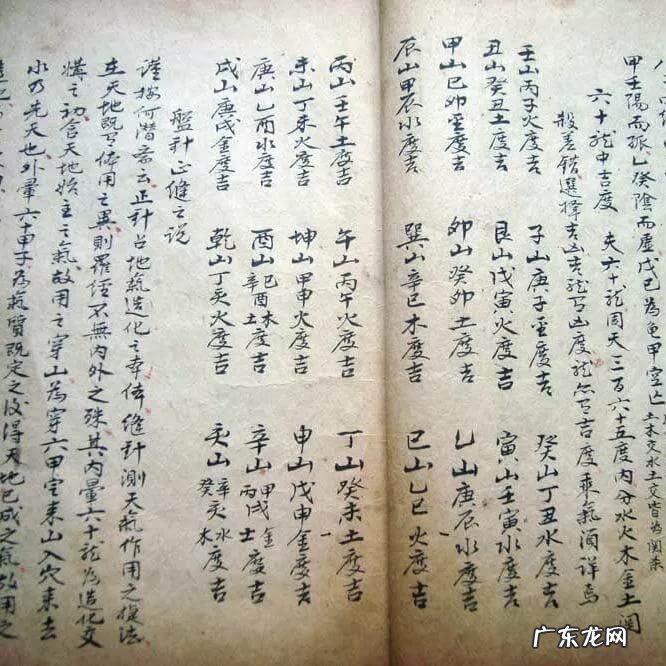 甲壬陽而孤乙癸陰而虛戊已為龜甲空亡
土木交水土交皆為関杀
六十龍中吉度
夫六十龍周天三百六十五度內分水火木金土関
殺差錯選擇吉凶吉龍有凶度凶龍亦有吉度乘氣須詳焉
壬山丙子火度吉
子山庚子金度吉
癸山丁丑水度吉
丑山癸丑土度吉
艮山戊寅火度吉
寅山壬寅水度吉
甲山已卯金度吉
卯山癸卯土度吉
乙山庚辰水度吉
辰山甲辰水度吉
巽山辛巳木度吉
巳山乙巳火度吉
丙山壬午土度吉
午山丙午火度吉
丁山癸未土度吉
未山丁未火度吉
坤山甲申火度吉
申山戊申金度吉
庚山乙酉水度吉
酉山己酉木土度吉
辛山甲丙戌金士度吉
戌山庚戌金度吉
乾山丁亥火度吉
亥山辛癸亥水木度吉
盤針正縫之説
謹按何潜斋云正針占地氣造化之本体縫針測天氣作用之提法
在天地既有体用之異則羅經不無内外之殊其内暈六十龍為造化交
媾之初含天地始主之氣故用之穿山為穿六甲定来山入穴来去
水乃先天也外暈六十甲子為氣質既定之後得天地已成之氣故用之